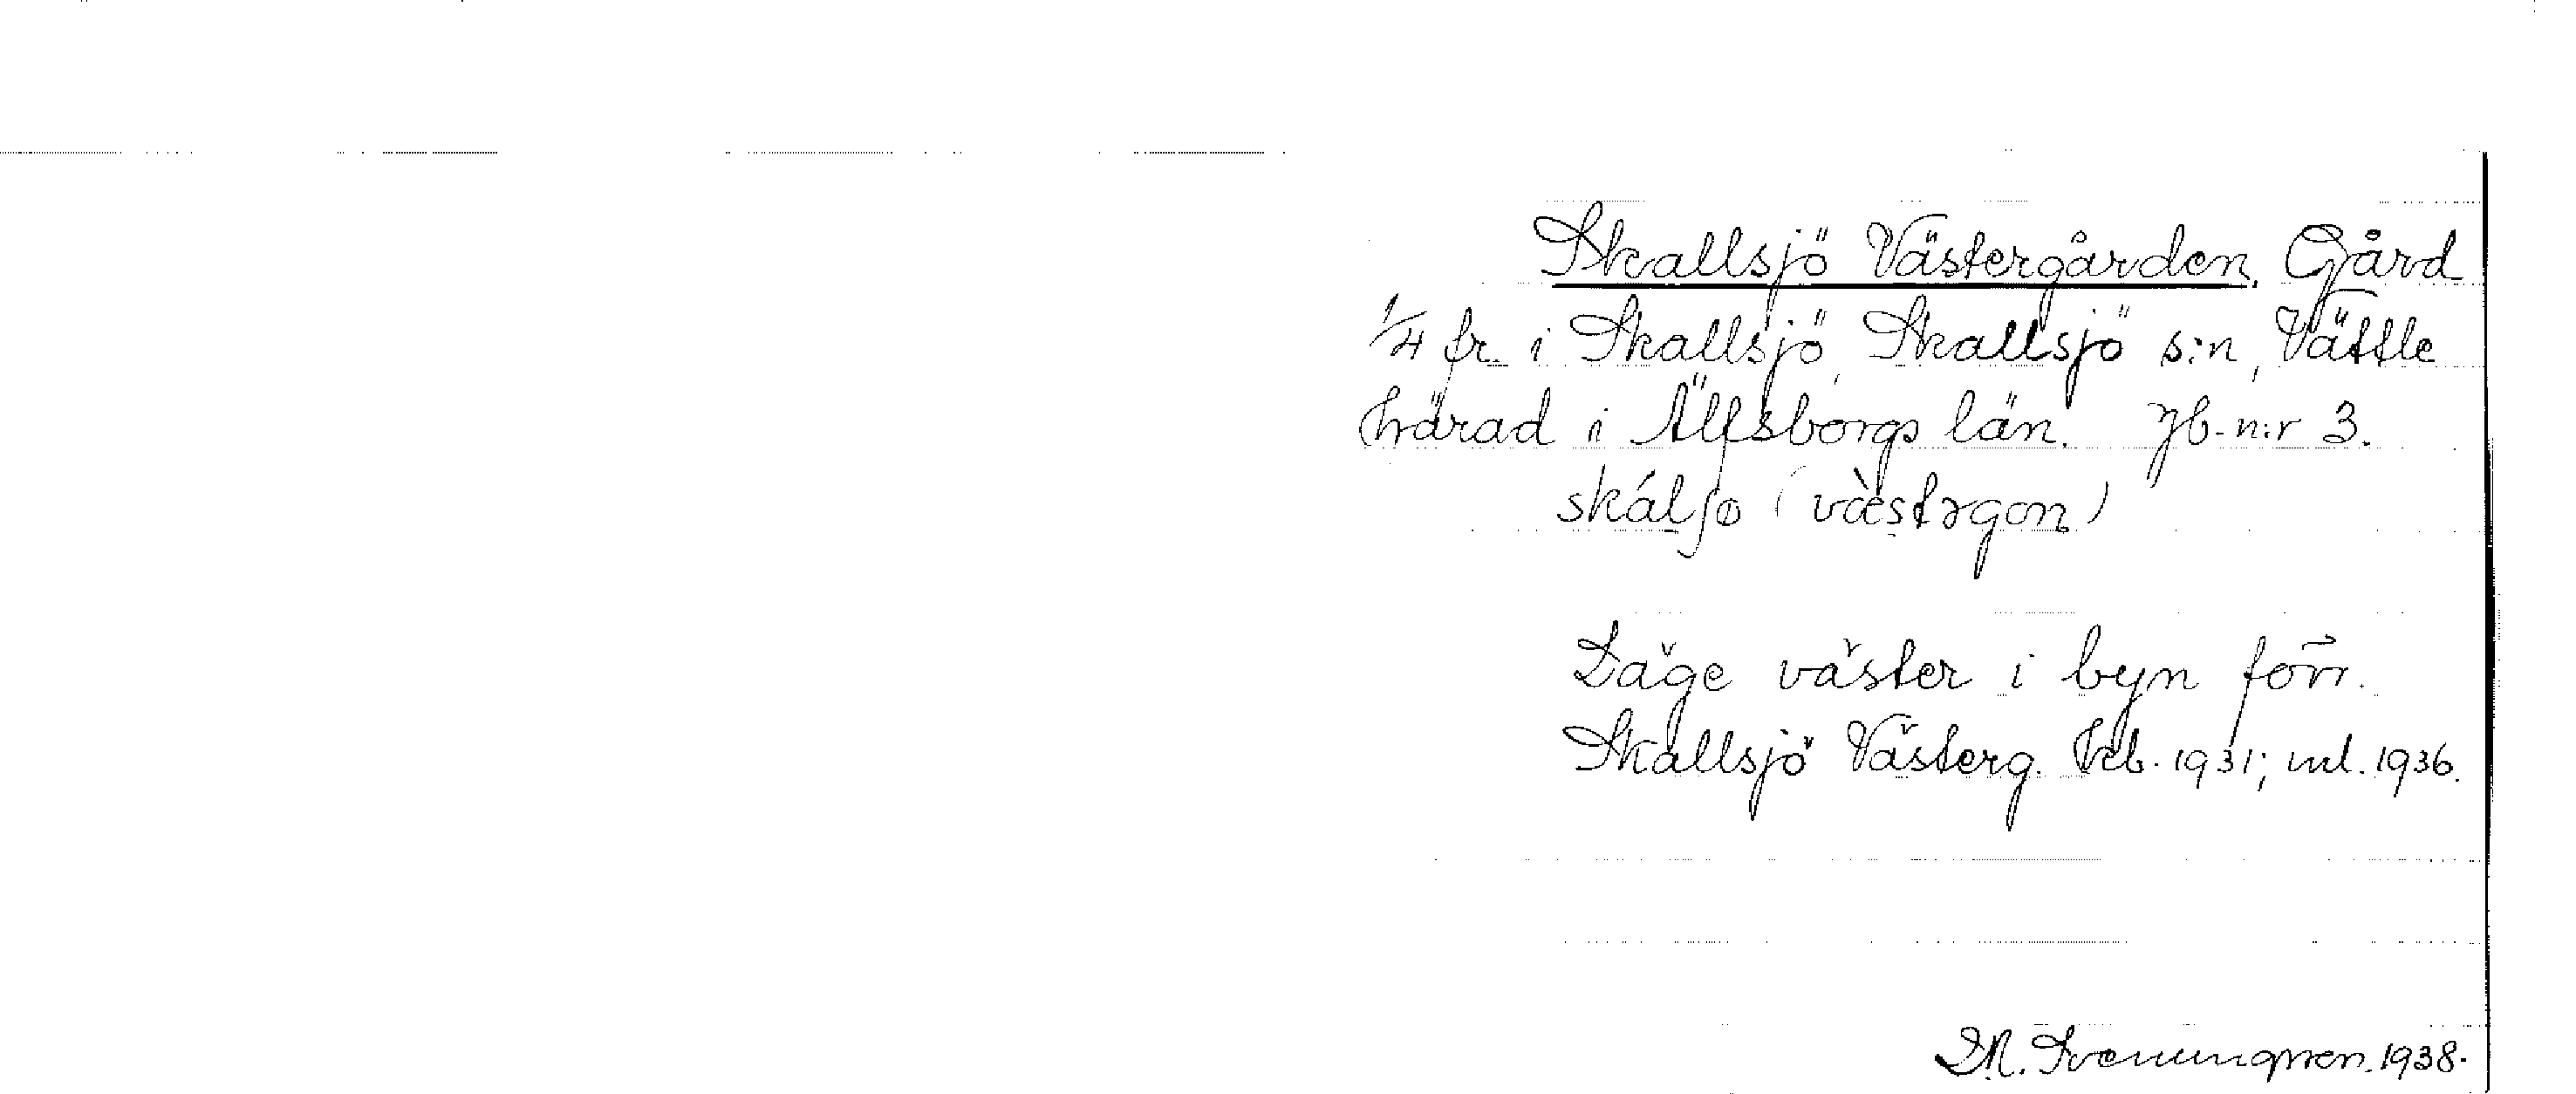 Skallsjö Västergården, Gård
1/4 fr. i Skallsjö, Skallsjö s:n, Vättle
härad i Älfsborgs län. Jb.n:r 3.
skálʃø (væ̀stərgɔn)
Läge väster i byn förr.
Skallsjö Västerg. 1931; ml. 1936.
1938.